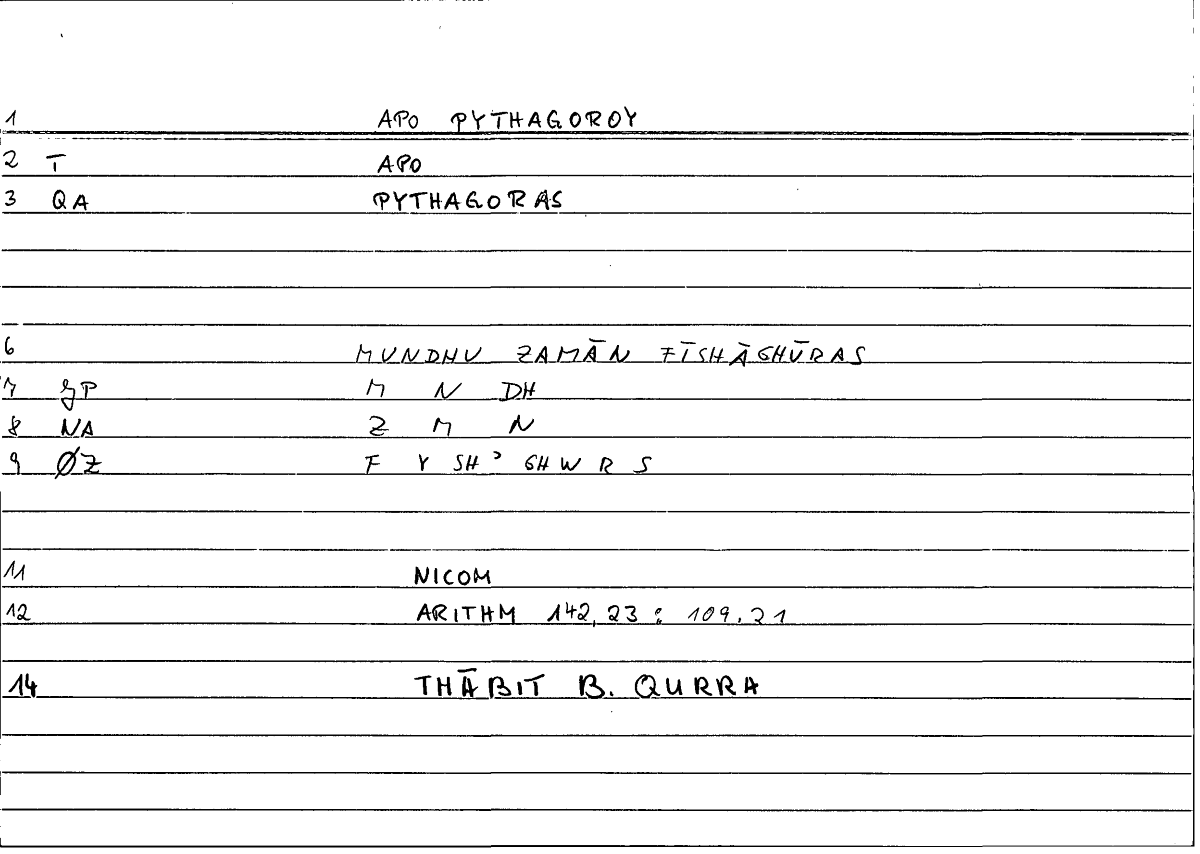 1 APO PYTHAGOROY
2 T APO
3 QA PYTHAGORAS
6 MUNDHU ZAMĀN FĪSHĀGHŪRAS
7 GP M N DH
8 NA Z M N
9 ØZ F Y SH ʾ GH W R S
11 NICOM
12 ARITHM 142,23 : 109.21
14 THĀBIT B. QURRA